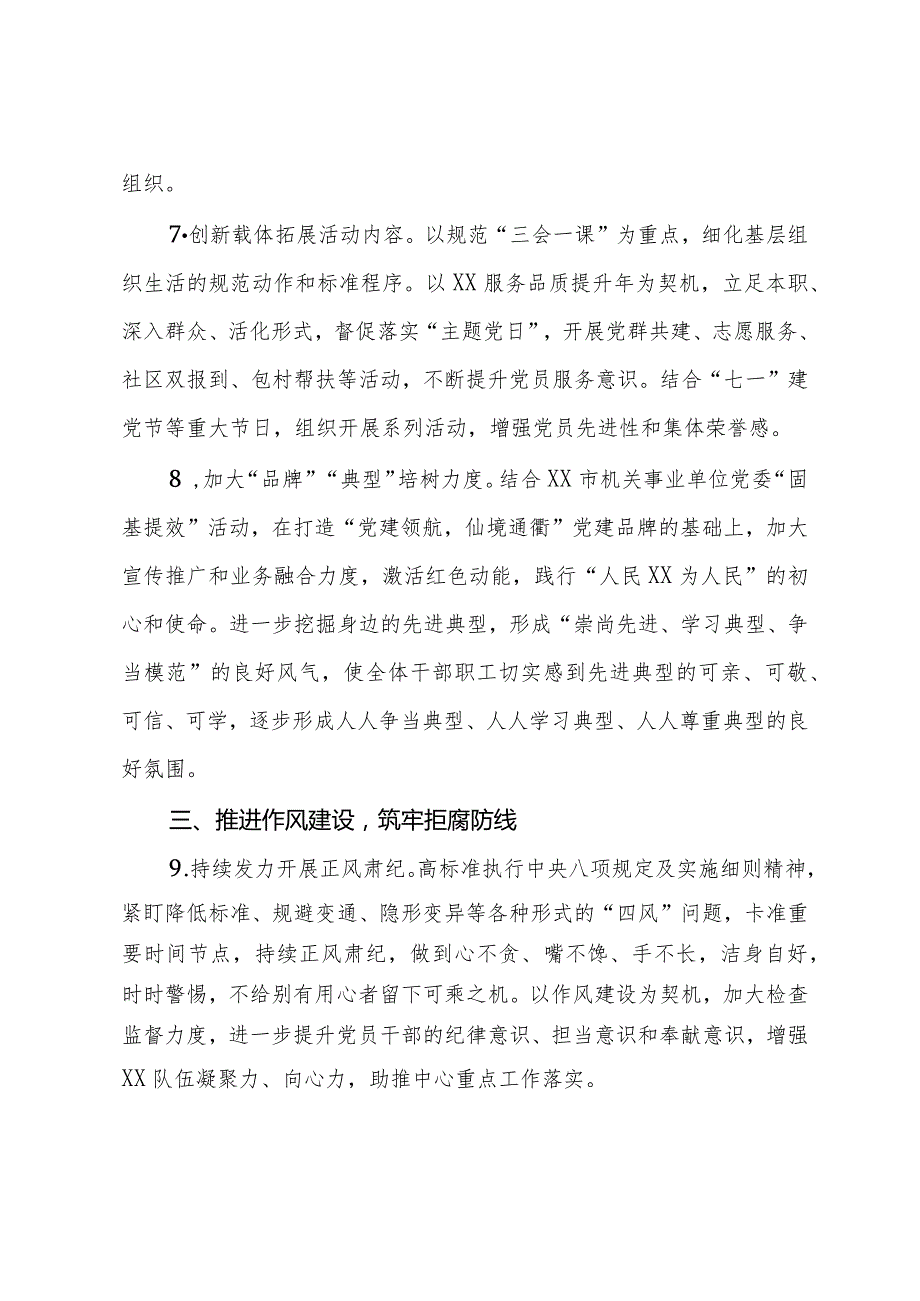 组织。
7•创新载体拓展活动内容。以规范“三会一课”为重点，细化基层组
织生活的规范动作和标准程序。以 XX 服务品质提升年为契机，立足本职、
深入群众、活化形式，督促落实“主题党日”，开展党群共建、志愿服务、
社区双报到、包村帮扶等活动，不断提升党员服务意识。结合“七一”建
党节等重大节日，组织开展系列活动，增强党员先进性和集体荣誉感。
8 ,加大“品牌”“典型”培树力度。结合 XX 市机关事业单位党委“固
基提效”活动，在打造“党建领航，仙境通衢”党建品牌的基础上，加大
宣传推广和业务融合力度，激活红色动能，践行“人民 XX 为人民”的初
心和使命。进一步挖掘身边的先进典型，形成“崇尚先进、学习典型、争
当模范”的良好风气，使全体干部职工切实感到先进典型的可亲、可敬、
可信、可学，逐步形成人人争当典型、人人学习典型、人人尊重典型的良
好氛围。
三、推进作风建设，筑牢拒腐防线
9.持续发力开展正风肃纪。高标准执行中央八项规定及实施细则精神，
紧盯降低标准、规避变通、隐形变异等各种形式的“四风”问题，卡准重
要时间节点，持续正风肃纪，做到心不贪、嘴不馋、手不长，洁身自好，
时时警惕，不给别有用心者留下可乘之机。以作风建设为契机，加大检查
监督力度，进一步提升党员干部的纪律意识、担当意识和奉献意识，增强
XX 队伍凝聚力、向心力，助推中心重点工作落实。